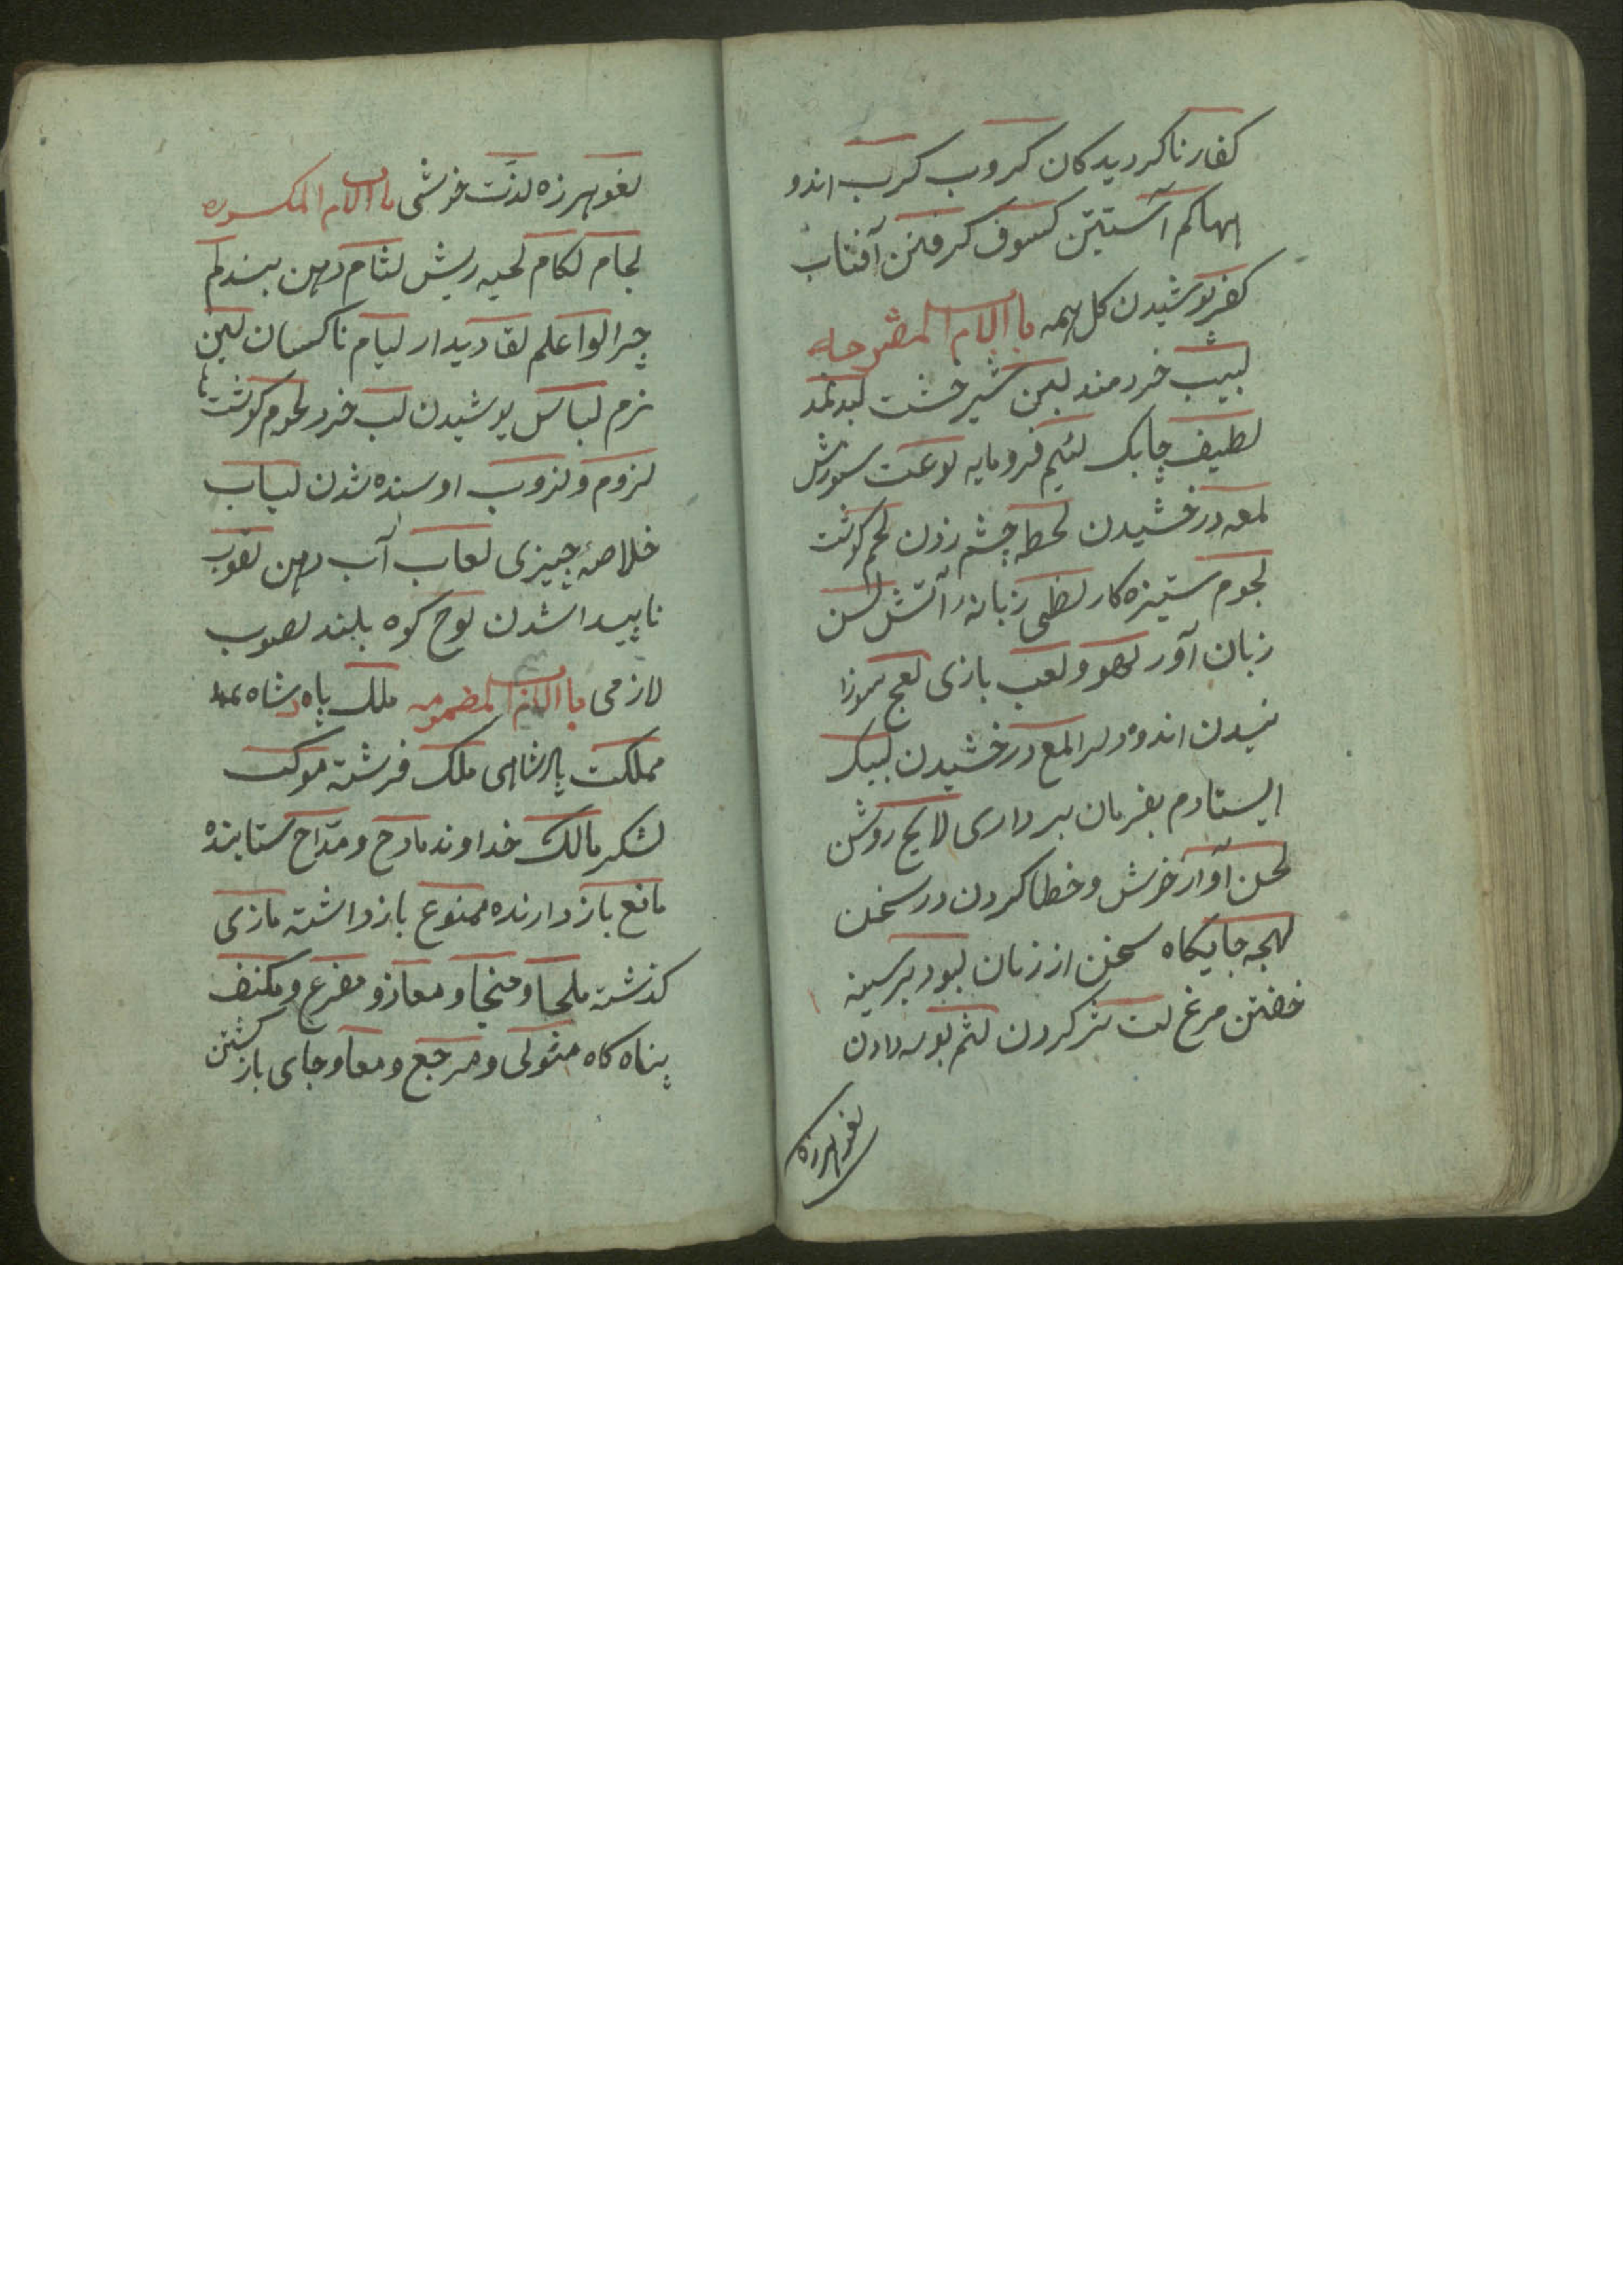 کفار ناکردیدکان کروب کرب اندو
الهاکم آستین کسوف کرفتن آفتاب
کفر پوشیدن کل همه باب اللام المفتوحه
لبیب خردمند لبن شیر خشت لبد نمد
لطیف چابک لئیم فرومایه لوعت سوزش
لمعه درخشیدن لحظه چشم زدن لحم کوشت
لجوم ستیزه کار لظی زبانهٔ آتش لسن
زبان آور لهو و لعب بازی لعج سوزا
نیدن اندوه دلرا لمع درخشیدن لبیک
ایستادم بفرمان برداری لایح روشن
لحن آواز خوش و خطا کردن در سخن
لهجه جایکاه سخن از زبان لبود بر سینه
خفتن مرغ لت تر کردن لثم بوسه دادن
لغو هرزه
لغو هرزه لذّت خوشی باب اللام المکسوره
لجام لکام لحیه ریش لثام دهن بند لم
چرا لوا علم لقا دیدار لیام ناکسان لین
نرم لباس پوشیدن لب خرد لحوم کوشتها
لزوم و لزوب اوسنده شدن لباب
خلاصهٔ چیزی لعاب آب دهن لغوب
ناپیدا شدن لوح کوه بلند لصوب
لازمی باب اللام المضمومه ملک پادشاه
مملکت پادشاهی ملک فرشته موکب
لشکر مالک خداوند مادح و مدّاح ستاینده
مانع باز دارنده ممنوع باز داشته مازی
کذشته ملجا و منجا و معاز و مفزع و مکنف
پناه کاه مثوی و مرجع و معاد جای باز کشتن